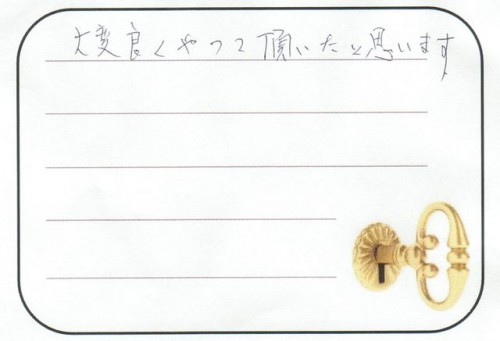 大変良くやって頂いたと思います